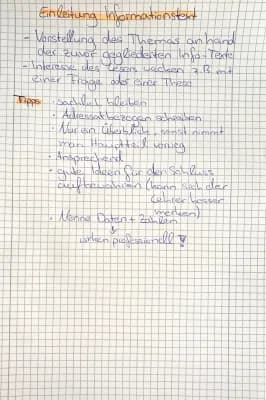 Einleitung Informationstext
- Vorstellung des Themas anhand
der zuvor gegliederten Info-Texte
- Interesse des Lesers wecken z.B. mit
einer Frage oder einer These
Tipps · Sachlich bleiben
· Adressatbezogen schreiben
· Nur ein Überblick, sonst nimmt
man Hauptteil vorweg
· Ansprechend
· gute Ideen für den Schluss
aufbewahren (kann sich der
Lehrer besser
merken)
· Nenne Daten + Zahlen
↓
wirken professionell !